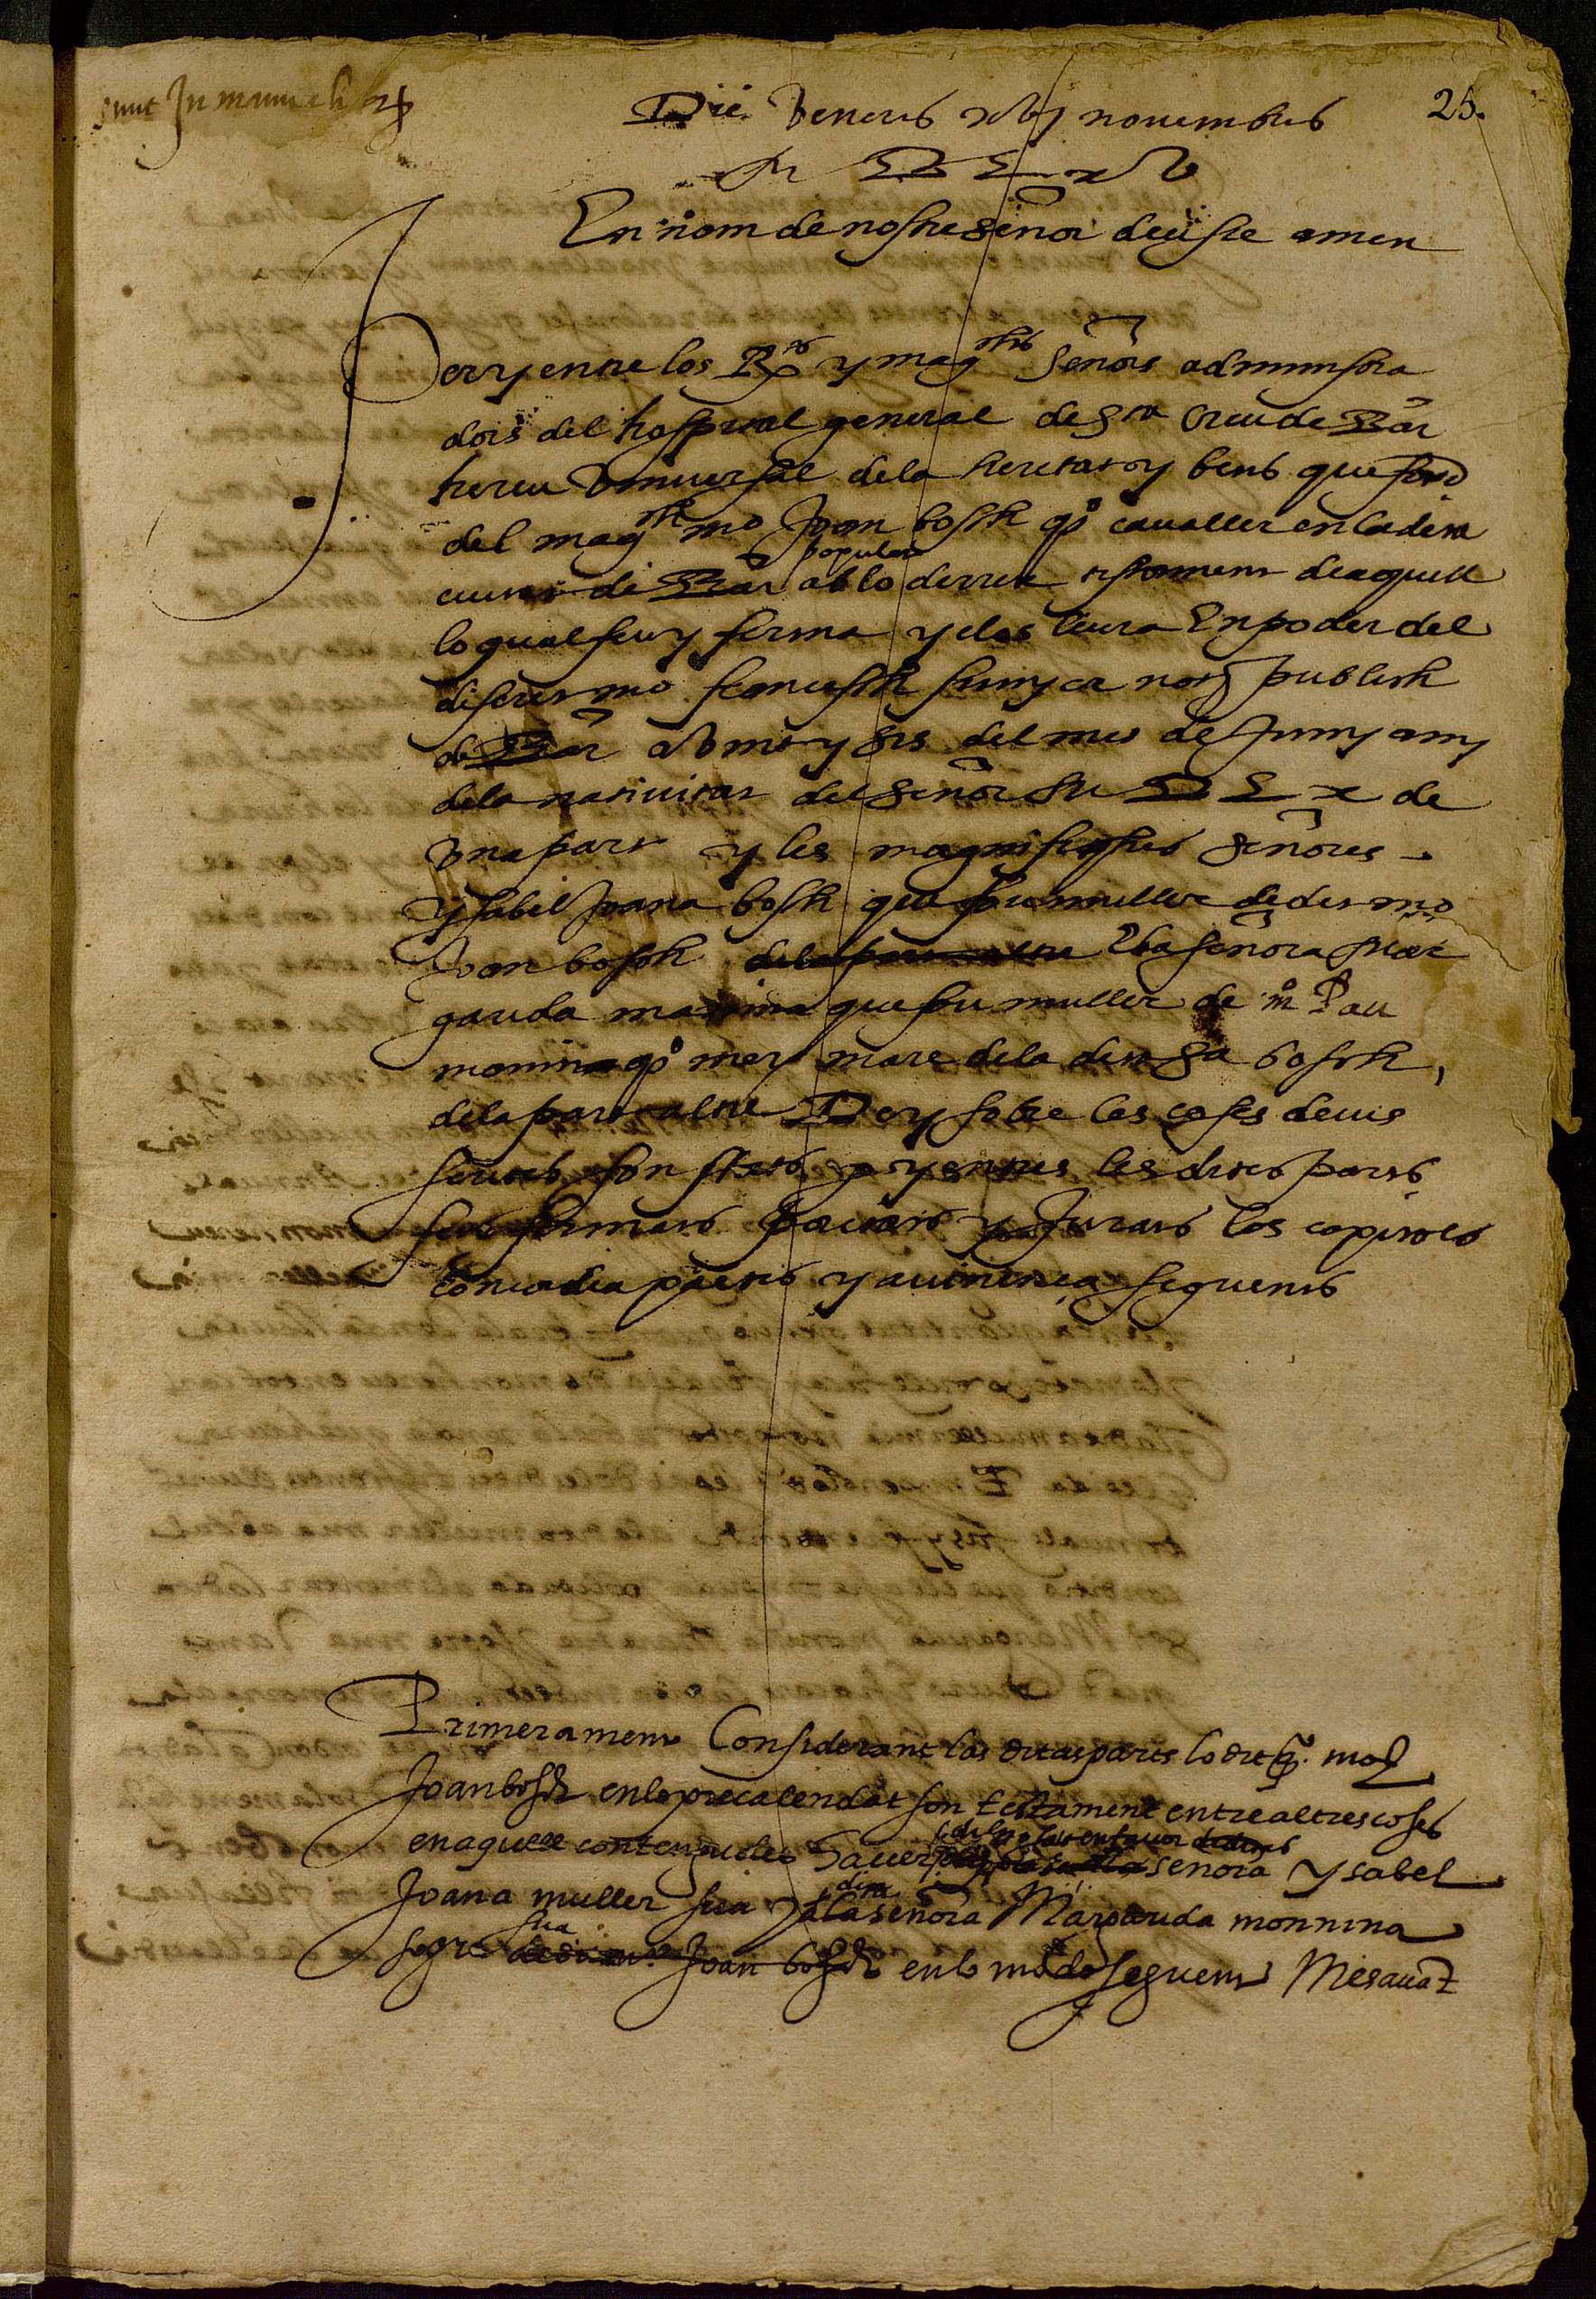 sunt In manueli
25.
Die Veneris xvj novembris
M D L x V
En nom de nostre señor deu sie amen
Per y entre los R.ts y mag.chs señors administra
dors del hospital general de s.ta creu de Bar.
hereu Universal dela heretat y bens que foren
del mag.ch mo Joan bosch q.o cavaller en la dita
ciutat de Bar. ab lo derrer testament de aquell
popula
lo qual feu y ferma y clos lliura En poder del
discret mo francesch sunyer not. publich
de Bar. a vint y sis del mes de Juny any
dela nativitat del señor M D L x de
Una part y les magnifiques señores
Ysabel Joana bosch que fou muller de dit mo
Joan bosch dela part altre E la señora Mar
garida monina que fu muller de m.o Pau
monina q.o mer mare dela dita s.a bosch,
dela part altre Per y sobre les coses devis
scrites son stats per y entre les dites parts
fets fermats pactats y Jurats los capitols
Concordia pactes y avinença seguents
Primerament Considerant las ditas parts lo dit q.o mo
Joan bosch en lo precalendat son testament entre altres coses
en aquell contengudes Haver señora Ysabel
Joana muller sua y a la dita señora Margarida monnina
sogre sua Joan bosch en lo modo seguent Mes avant